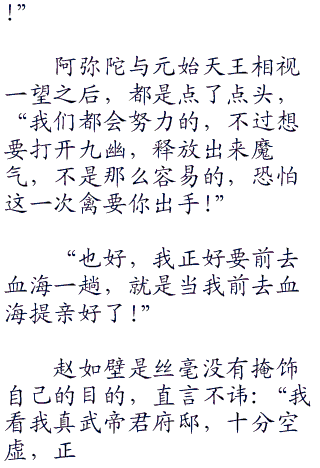 !”
阿弥陀与元始天王相视
一望之后，都是点了点头，
“我们都会努力的，不过想
要打开九幽，释放出来魔
气，不是那么容易的，恐怕
这一次禽要你出手!”
“也好，我正好要前去
血海一趟，就是当我前去血
海提亲好了!”
赵如壁是丝毫没有掩饰
自己的目的，直言不讳：“我
看我真武帝君府邸，十分空
虚，正